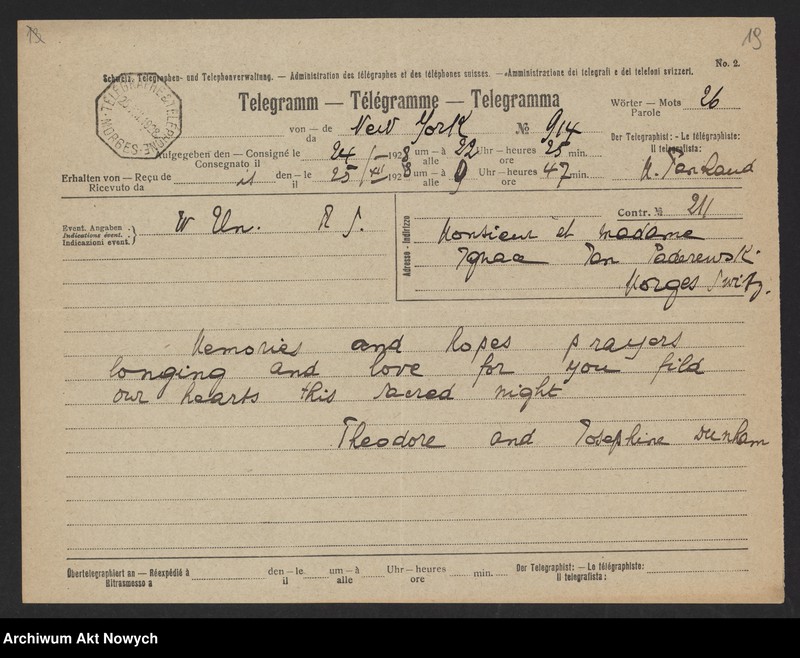 19
19
No. 2.
Schweiz. Telegraphen- und Telephonverwaltung. — Administration des télégraphes et des téléphones suisses. — Amministrazione dei telegrafi e dei telefoni svizzeri.
TELEGRAPHE & TELEPHONE
MORGES
Telegramm — Télégramme — Telegramma
Wörter — Mots 26
Parole
von — de New York № 914
da
Der Telegraphist: - Le télégraphiste:
Il telegrafista:
Aufgegeben den — Consigné le 24 / — 1928 um — à 22 Uhr — heures 25 min.
Consegnato il alle ore
Erhalten von — Reçu de den — le 25 / XII 1928 um — à 9 Uhr — heures 47 min.
Ricevuto da il alle ore
Contr. № 211
Event. Angaben
Indications évent.
Indicazioni event.
W Un. R S.
Adresse - Indirizzo
Monsieur et Madame
Ignace Jan Paderewski
Morges Switz.
Memories and hopes prayers
longing and love for you fild
our hearts this sacred night
Theodore and Josephine Dunham
Übertelegraphiert an — Réexpédié à den — le um — à Uhr — heures min.
Ritrasmesso a il alle ore
Der Telegraphist: — Le télégraphiste:
Il telegrafista:
Archiwum Akt Nowych